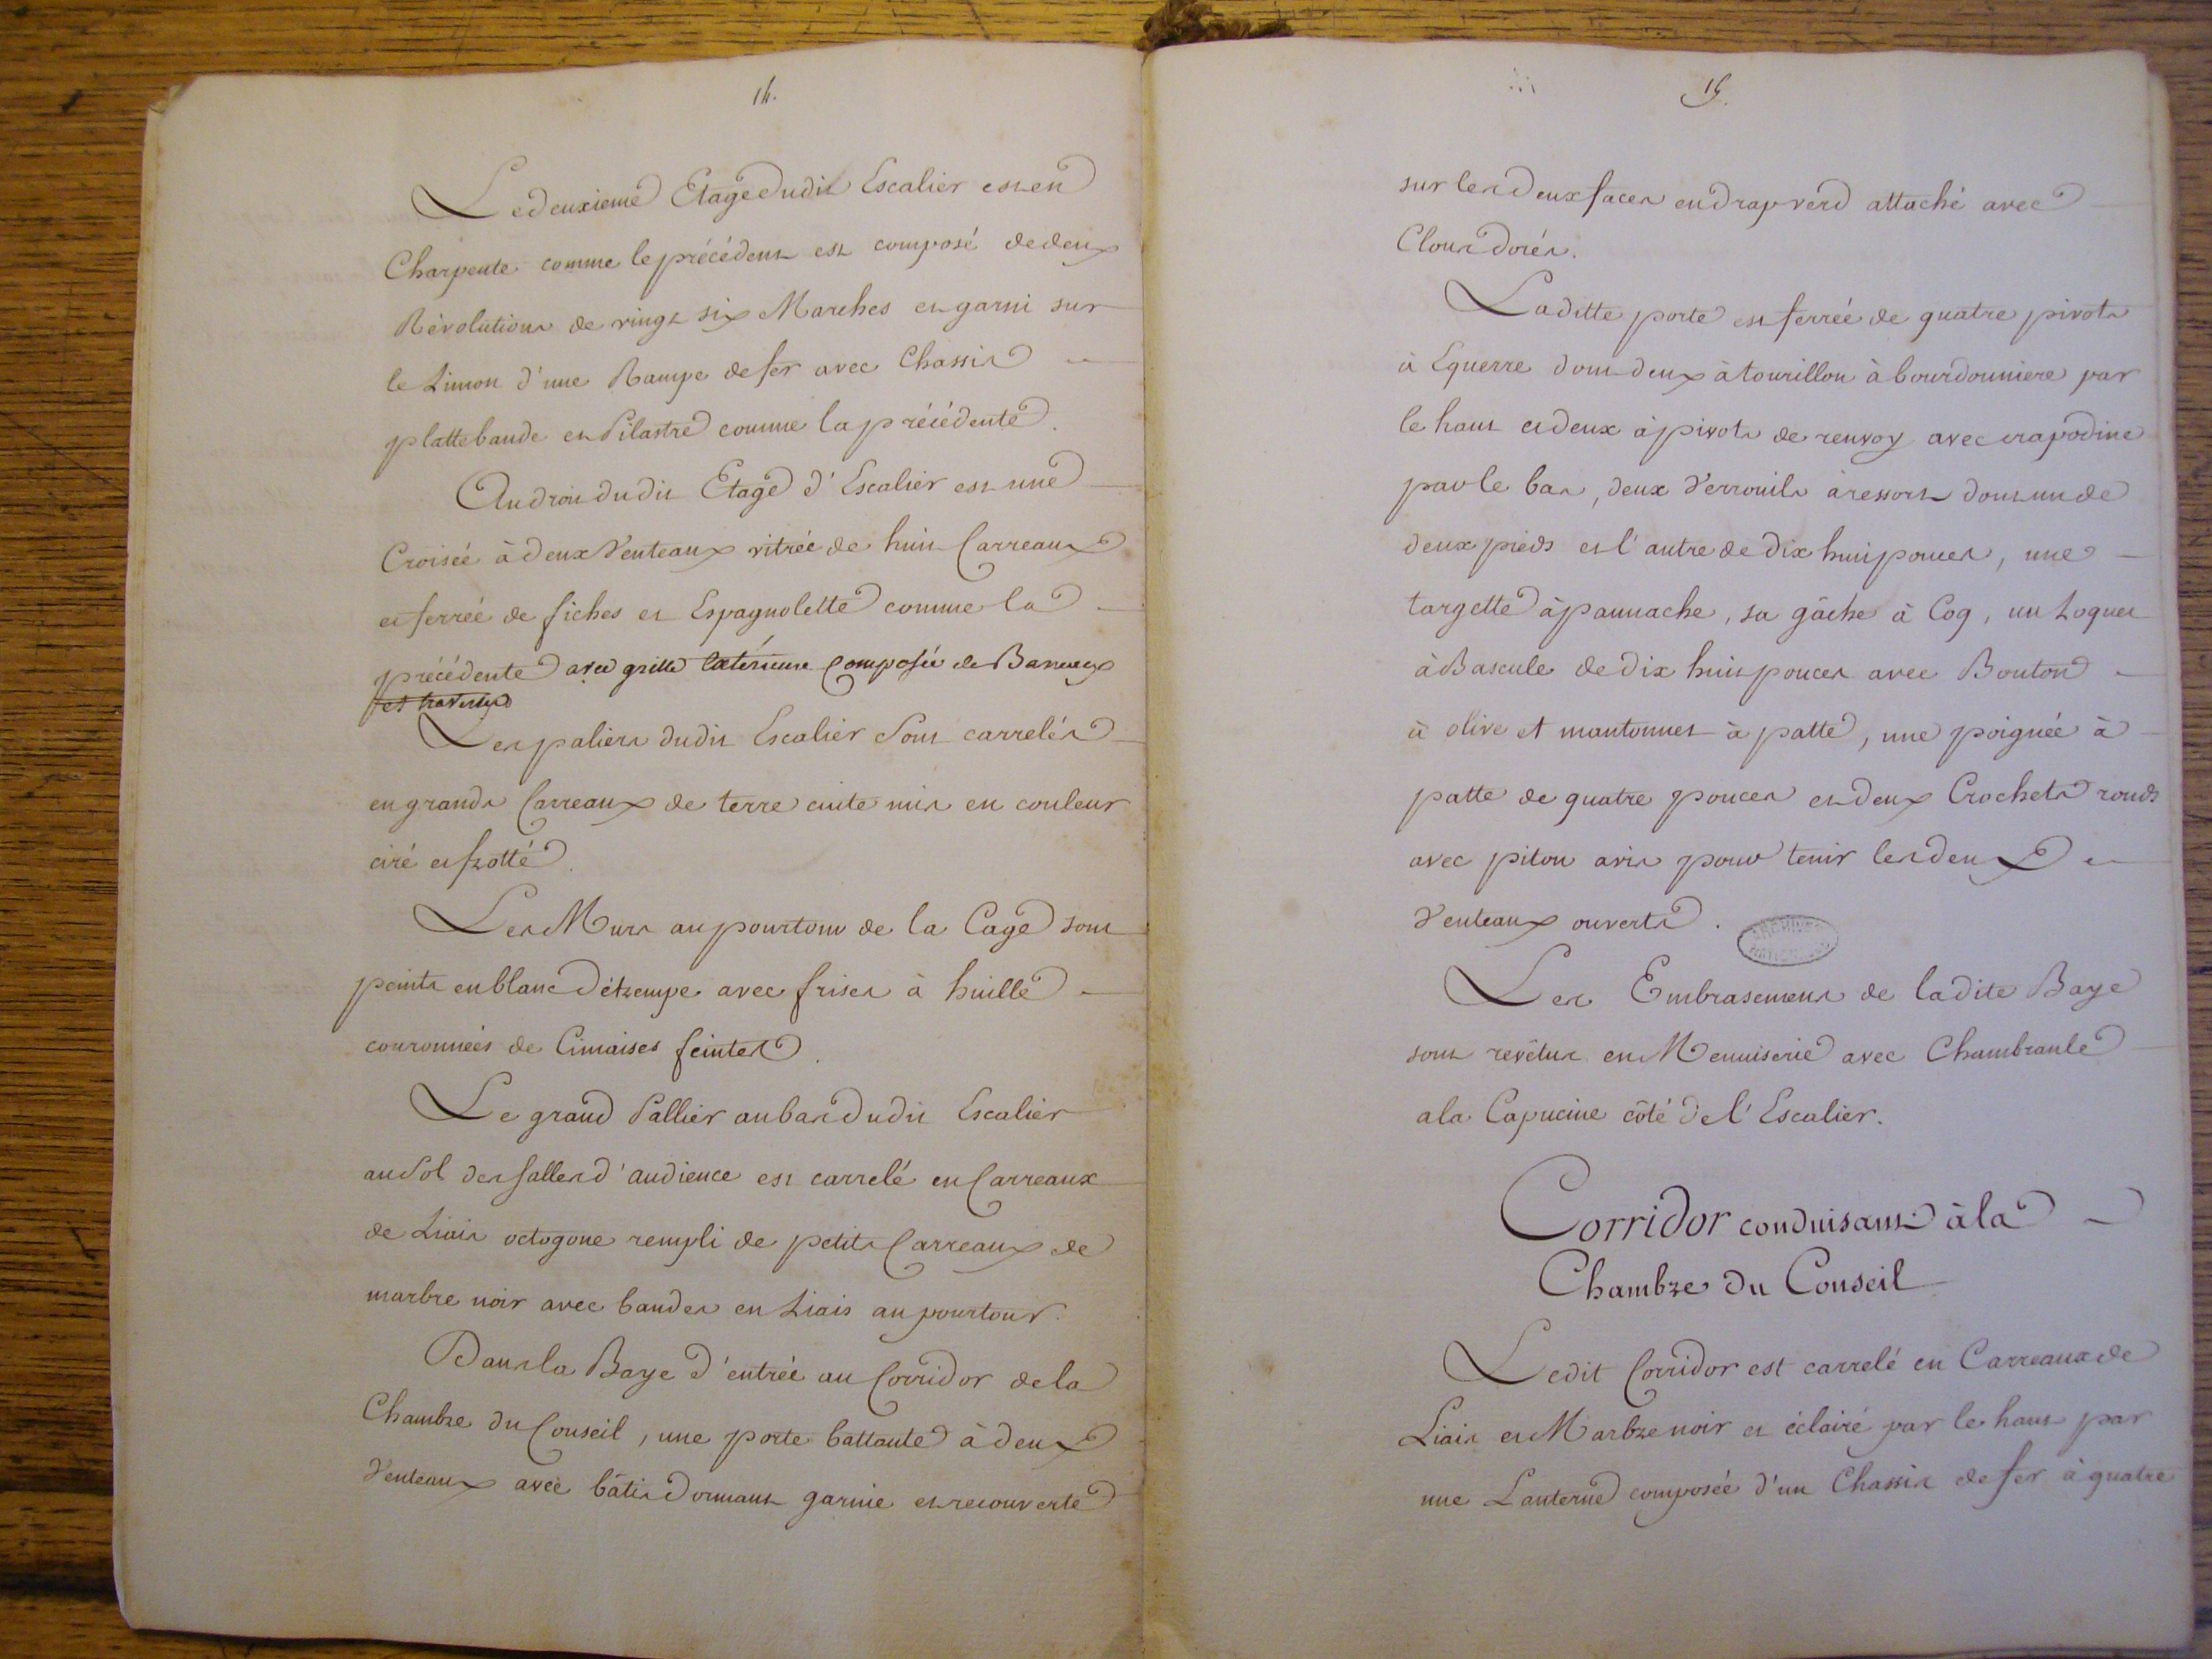 14.
Le deuxieme Etage dudit Escalier est en
Charpente comme le précédent est composé de deux
Révolutions de vingt six Marches et garni sur
le Limon d'une Rampe de fer avec Chassis
plattebande et Pilastre comme la précédente.
Au droit dudit Etage d'Escalier est une
Croisée à deux Venteaux vitrée de huit Carreaux
et ferrée de fiches et Espagnolette comme la
précédente avec grille extérieure Composée de Barreaux
et traverses
Les paliers dudit Escalier Sont carrelés
en grands Carreaux de terre cuite mis en couleur
ciré et frotté.
Les Murs au pourtour de la Cage sont
peints en blanc Détrempe avec frises à huille
couronnées de Cimaises feintes.
Le grand Pallier au bas dudit Escalier
au Sol des Salles d'audience est carrelé en Carreaux
de Liais octogone rempli de petits Carreaux de
marbre noir avec bandes en Liais au pourtour.
Dans la Baye d'entrée au Corridor de la
Chambre du Conseil, une porte battante à deux
Venteaux avec bâtis Dormant garnie et recouverte
15.
sur les deux faces en drap verd attaché avec
Clous dorés.
Laditte porte est ferrée de quatre pivots
à Equerre dont deux à tourillon à bourdonniere par
le haut et deux à pivots de renvoy avec crapodine
par le bas, deux Verrouils à ressort dont un de
deux pieds et l'autre de dix huit pouces, une
targette à pannache, sa gâche à Coq, un Loquet
à Bascule de dix huit pouces avec Bouton
à olive et mantonnet à patte, une poignée à
patte de quatre pouces et deux Crochets ronds
avec piton à vis pour tenir les deux
Venteaux ouverts.
ARCHIVES
Les Embrasemens de ladite Baye
sont revêtus en Menuiserie avec Chambranle
a la Capucine côté de l'Escalier.
Corridor conduisant à la
Chambre du Conseil
Ledit Corridor est carrelé en Carreaux de
Liais et Marbre noir et éclairé par le haut par
une Lanterne composée d'un Chassis de fer à quatre